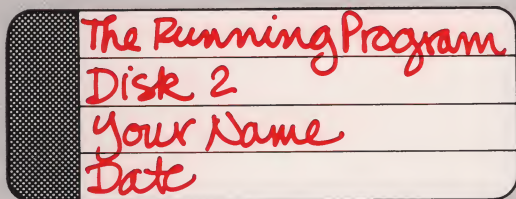 The Running Program
Disk 2
Your Name
Date